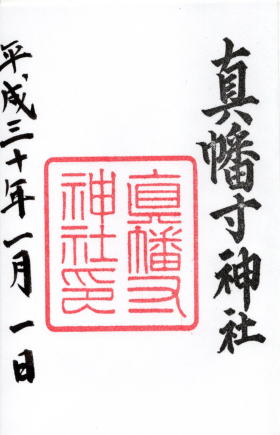 真幡寸神社
真幡寸
神社印
平成三十年一月一日